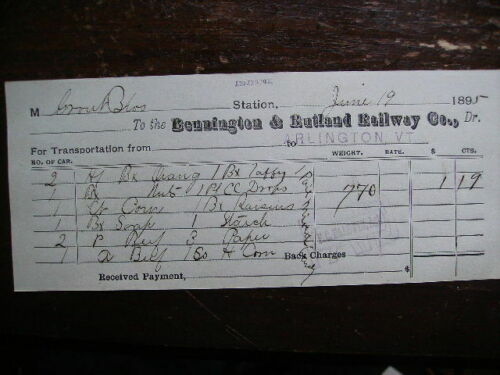 M Crouk Bros Station, June 19 1895
To the Bennington & Rutland Railway Co., Dr.
For Transportation from to ARLINGTON VT.
NO. OF CAR. WEIGHT. RATE. $ CTS.
2 Hf Bx Orang 1 Bx Taffy 770 1 19
1 Bx Nuts 1 Pl CC Drops
1 Corn 1 Bx Raisins
1 Bx Soap 1 Starch
2 P 3 Paper
1 1 So H Corn Back Charges
Received Payment, $